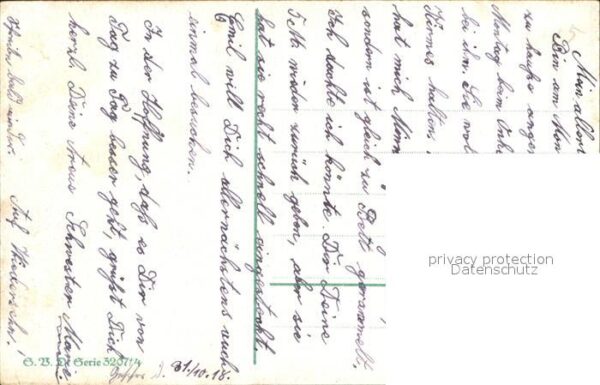 Mein aller
Bin am Mon
zu hause ange
Montag beim Onke
bei ihm. Sie wol
Kirmes halten,
hat mich Mam
sondern ist gleich zu Bett gerammelt,
Ich dachte ich könnte Dir Deine
5 M. wieder zurück geben, aber sie
hat sie recht schnell eingesteckt.
Emil will Dich allernächstens auch
einmal besuchen.
In der Hoffnung, daß es Dir von
Tag zu Tag besser geht, grüßt Dich
herzl. Deine treue Schwester Marie
Schreibe bald wieder. Auf Wiedersehn!
privacy protection
Datenschutz
G. B. D. Serie 3207/4
31/10.18.